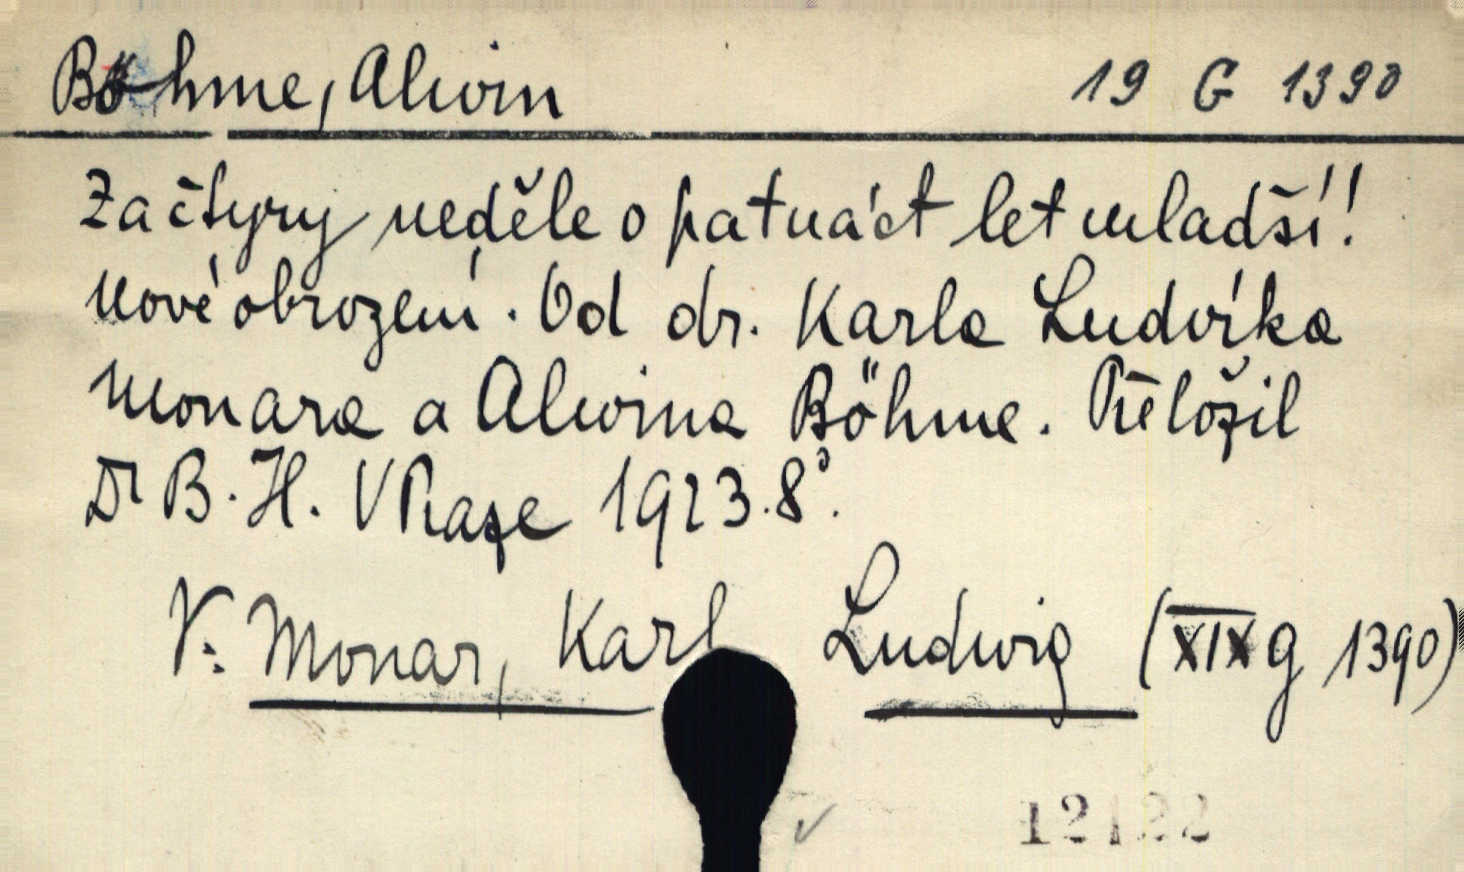 Böhme, Alwin 19 G 1390
Za čtyry neděle o patnáct let mladší!
Nové obrození. Od dr. Karla Ludvíka
Monara a Alwina Böhme. Přeložil
Dr B. H. V Praze 1923. 8°.
V: Monar, Karl Ludwig (XIX g 1390)
12122